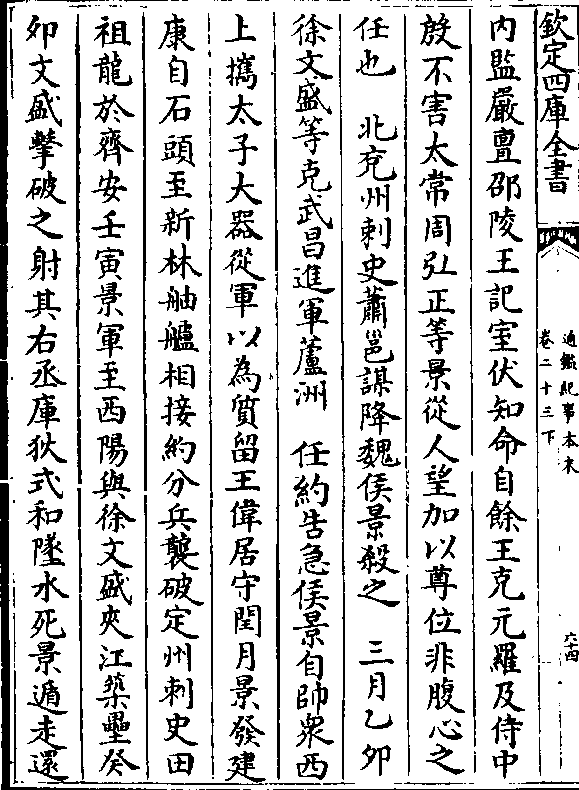 欽定四庫全書
通鑑紀事本末
卷二十三下
六十四
内監嚴亶邵陵王記室伏知命自餘王克元羅及侍中
殷不害太常周弘正等景從人望加以尊位非腹心之
任也　北兖州刺史蕭邕謀降魏侯景殺之　三月乙夘
徐文盛等克武昌進軍蘆洲　任約告急侯景自帥衆西
上攜太子大器從軍以為質留王偉居守閏月景發建
康自石頭至新林舳艫相接約分兵襲破定州刺史田
祖龍於齊安壬寅景軍至西陽與徐文盛夾江築壘癸
夘文盛擊破之射其右丞庫狄式和墜水死景遁走還